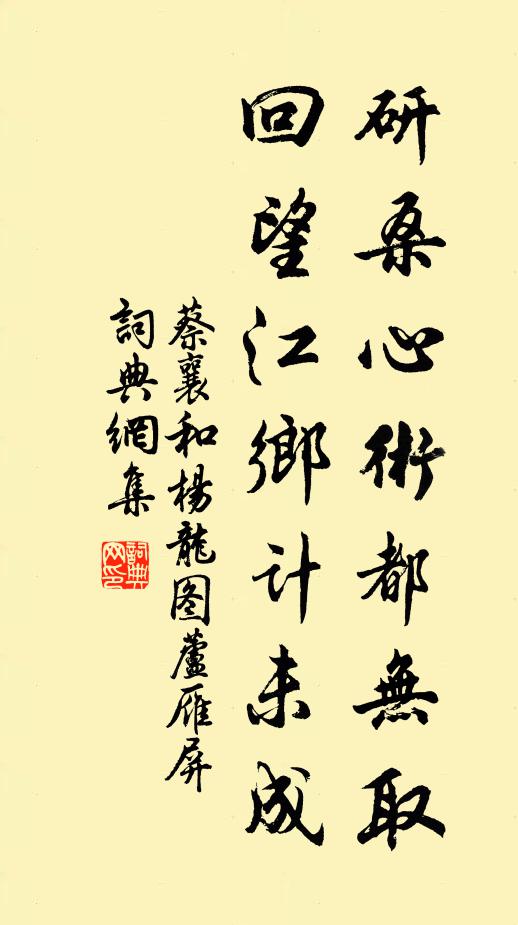 研桑心術都無取
回望江鄉计未成
蔡襄和楊龍图蘆雁屏
詞典網集
詞典网印